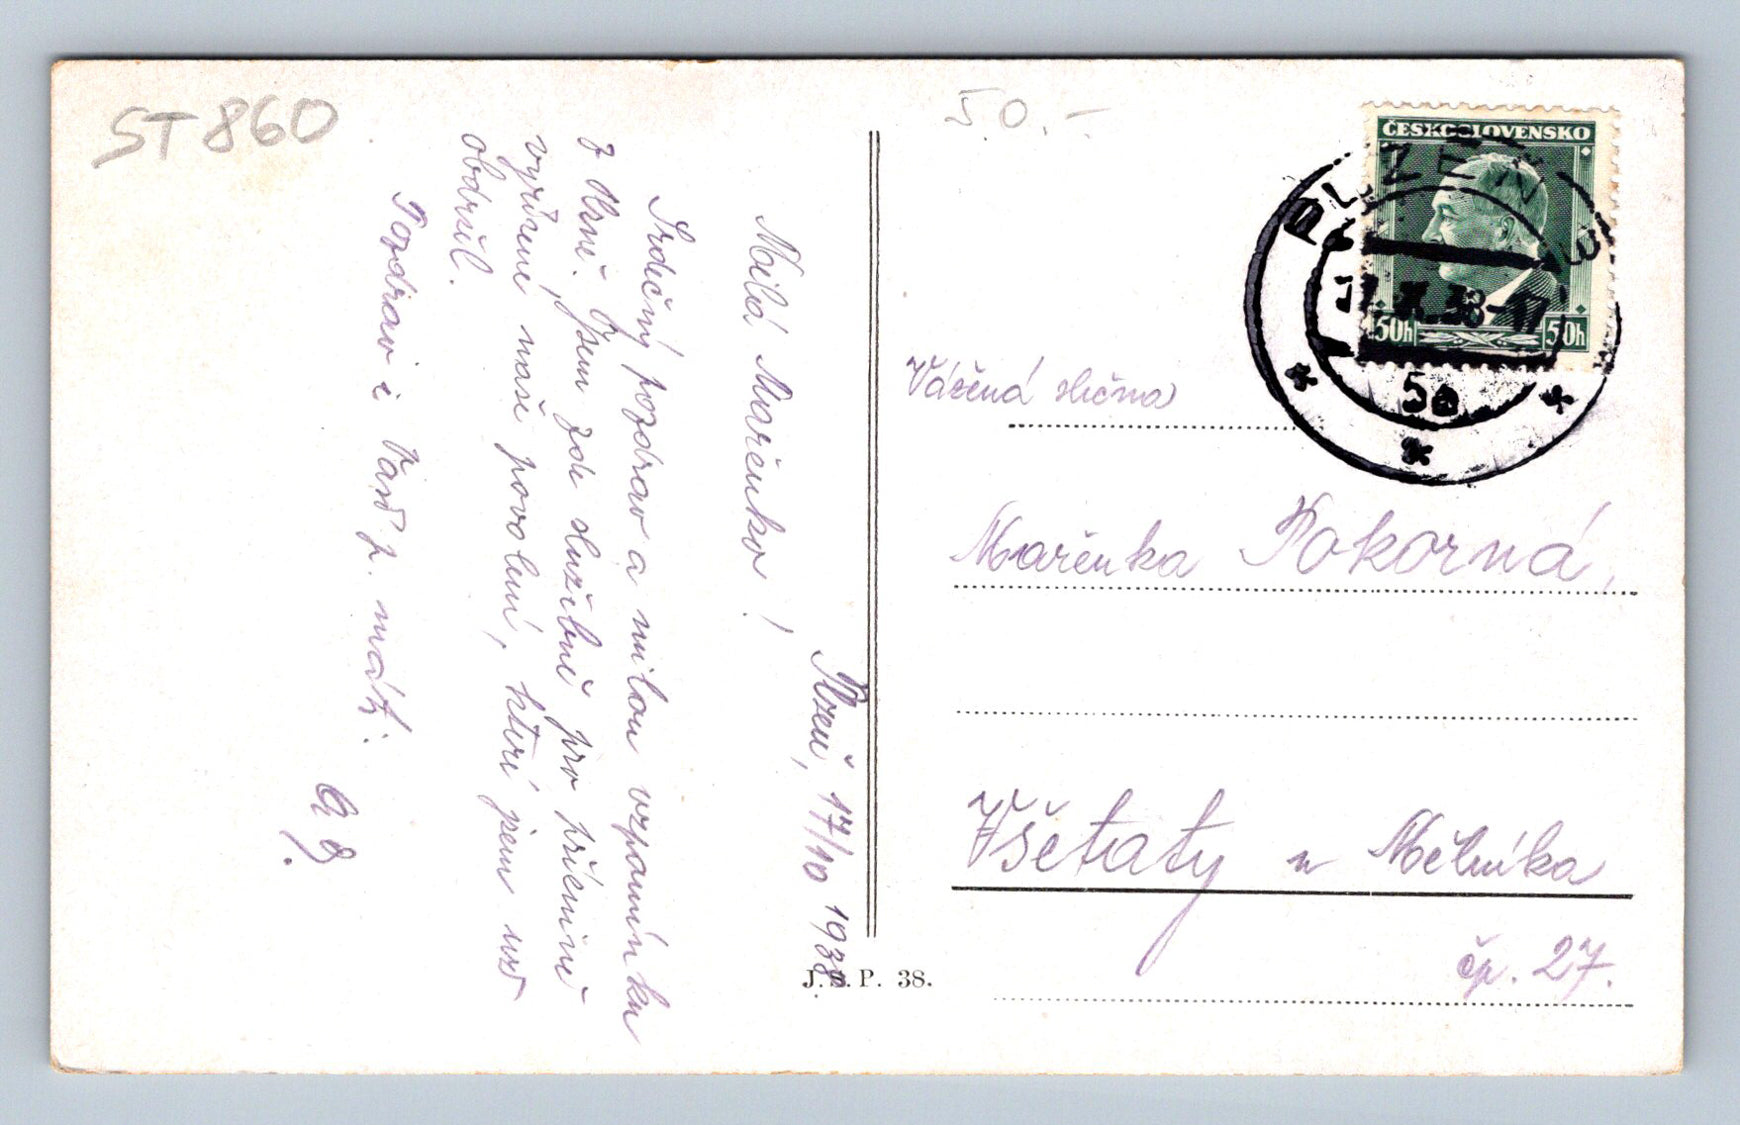 ST 860
50.-
ČESKOSLOVENSKO
50h 50h
PLZEŇ 3
17.X.38-17
5a
Plzeň, 17/10 1938
Milá Mařenko!
Srdečný pozdrav a milou vzpomínku
z Plzně. Jsem zde služebně pro příjemné
vyřízení naše povolení, které jsem už
obdržel.
Pozdrav i Vaší p. mátě.
Vážená slečna
Mařenka Pokorná,
Všetaty u Mělníka
čp. 27.
J.S.P. 38.